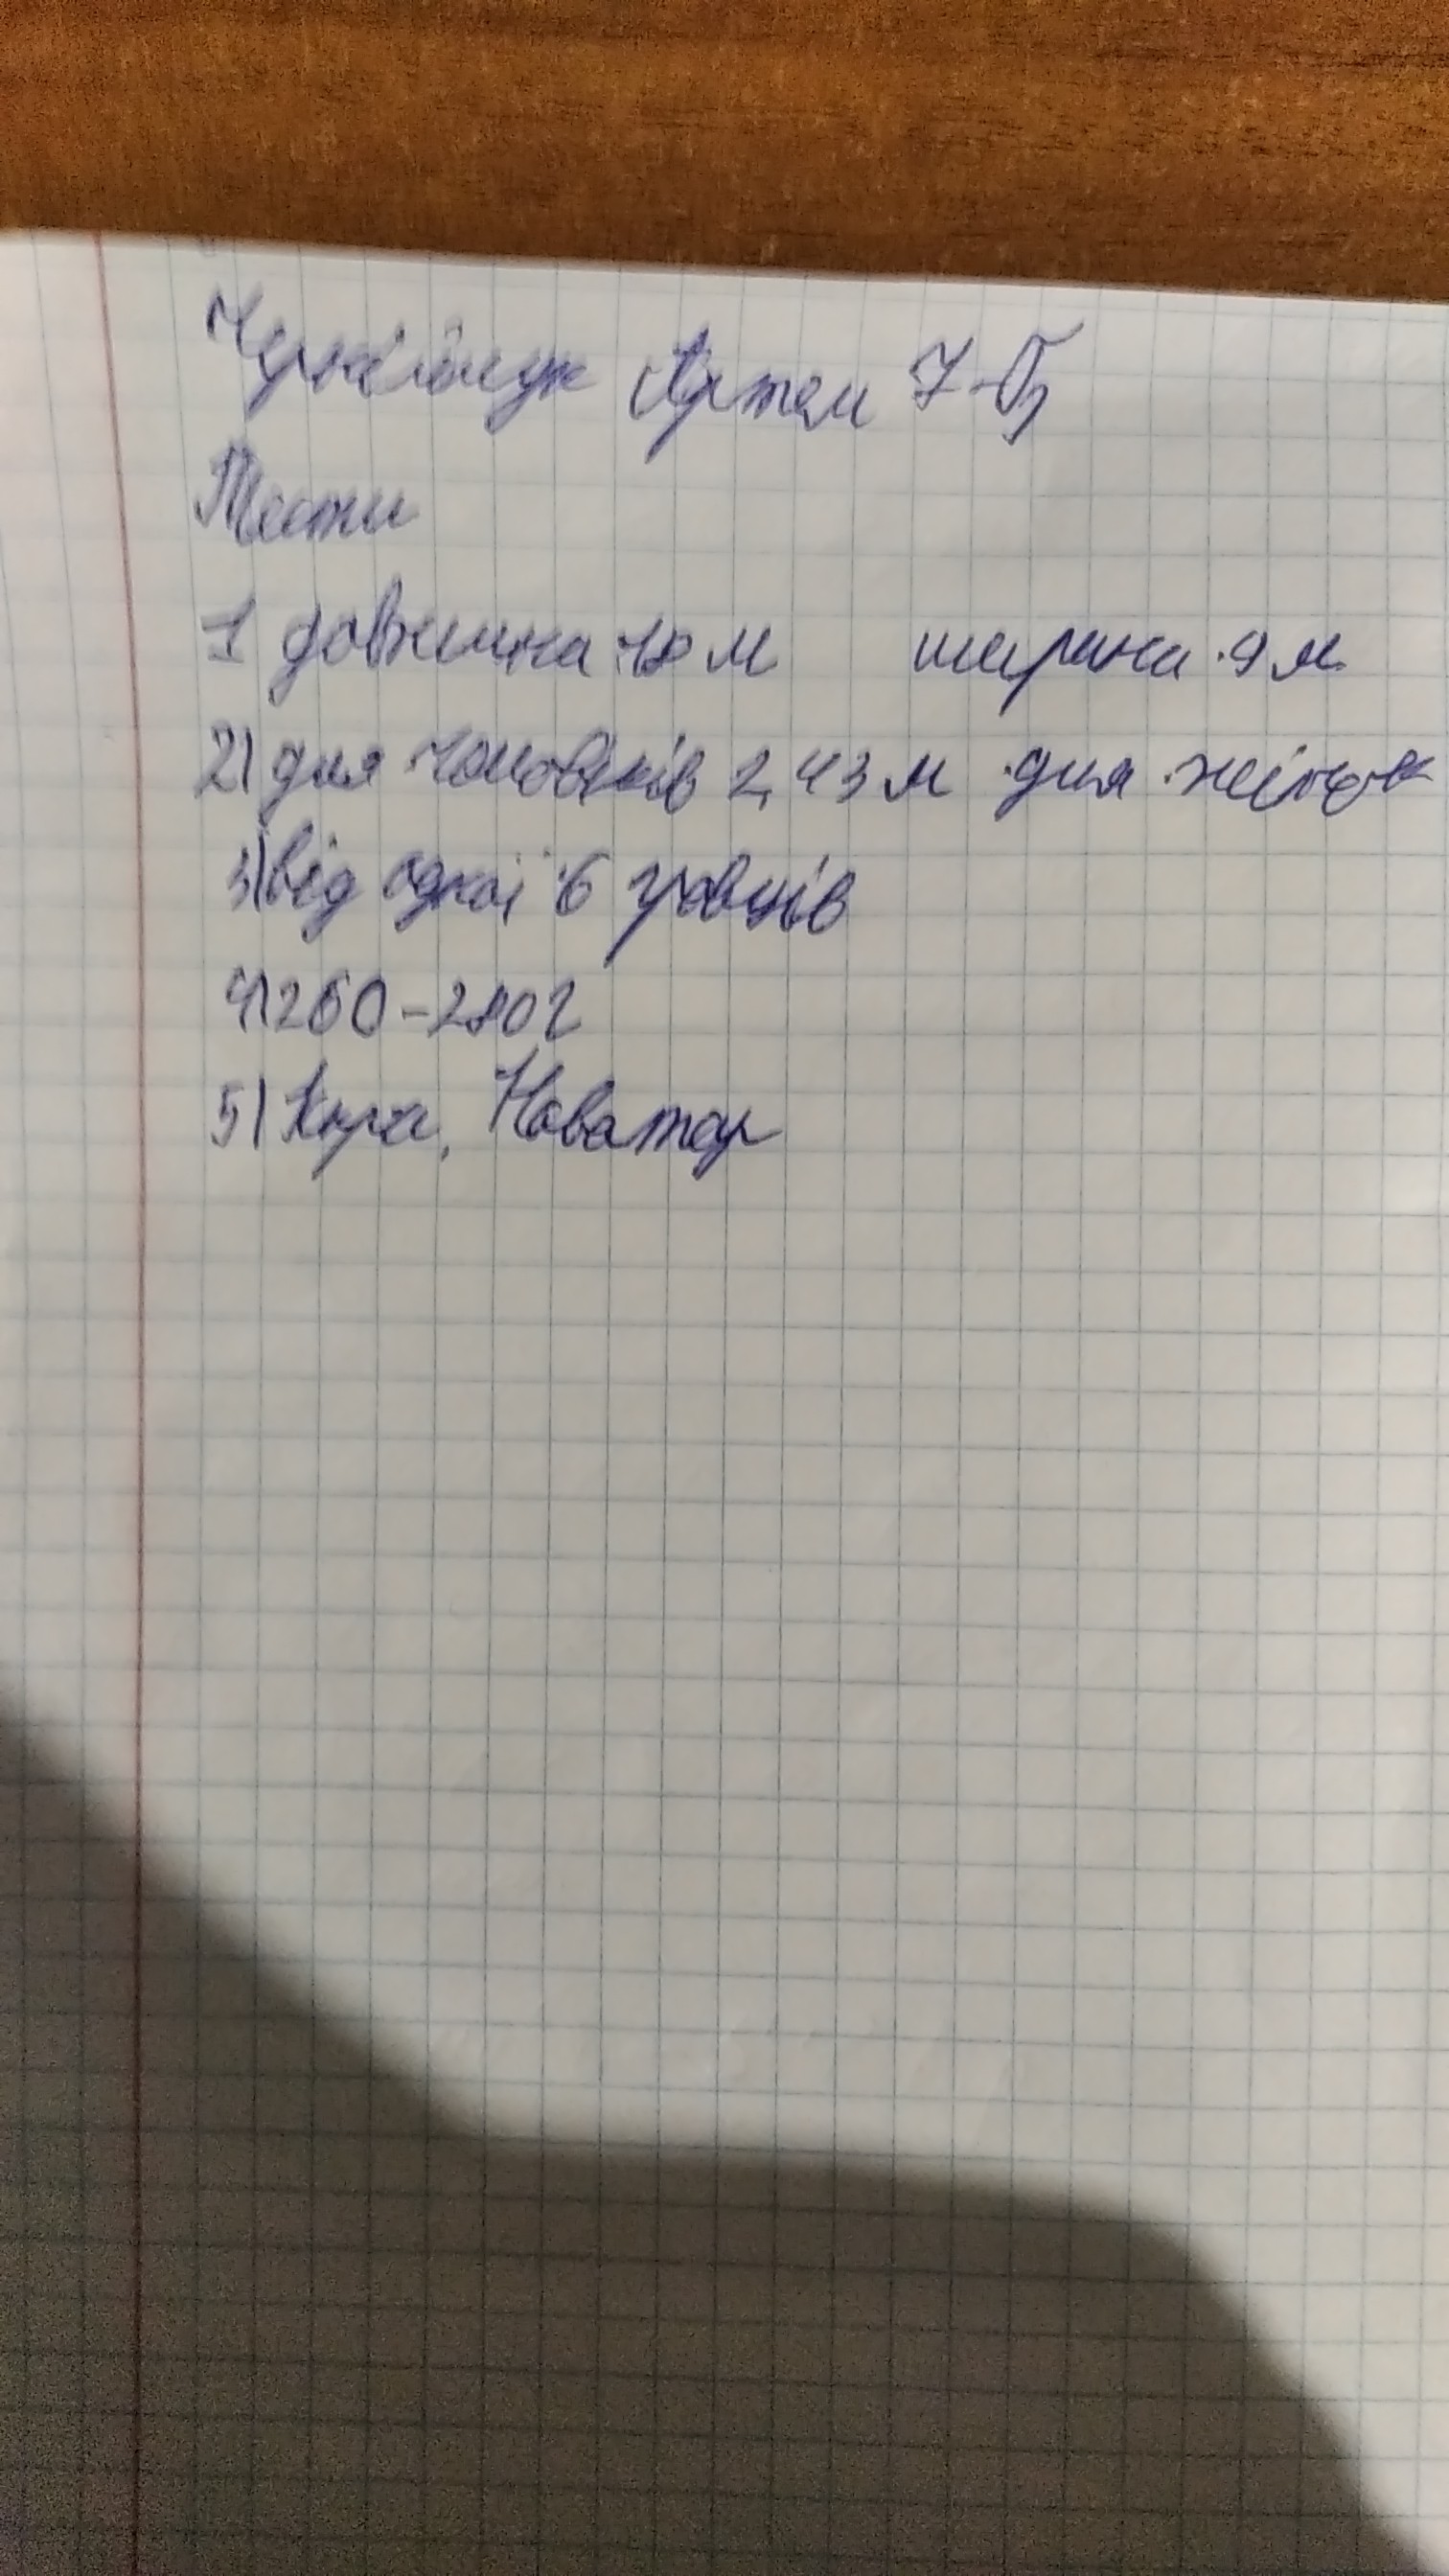 Артем 7-Б
Тести
1 довжина 18 м ширина 9 м
2) для чоловіків 2,43 м для жінок
3) від одної 6 гравців
4)260-280 г
5) Новатор